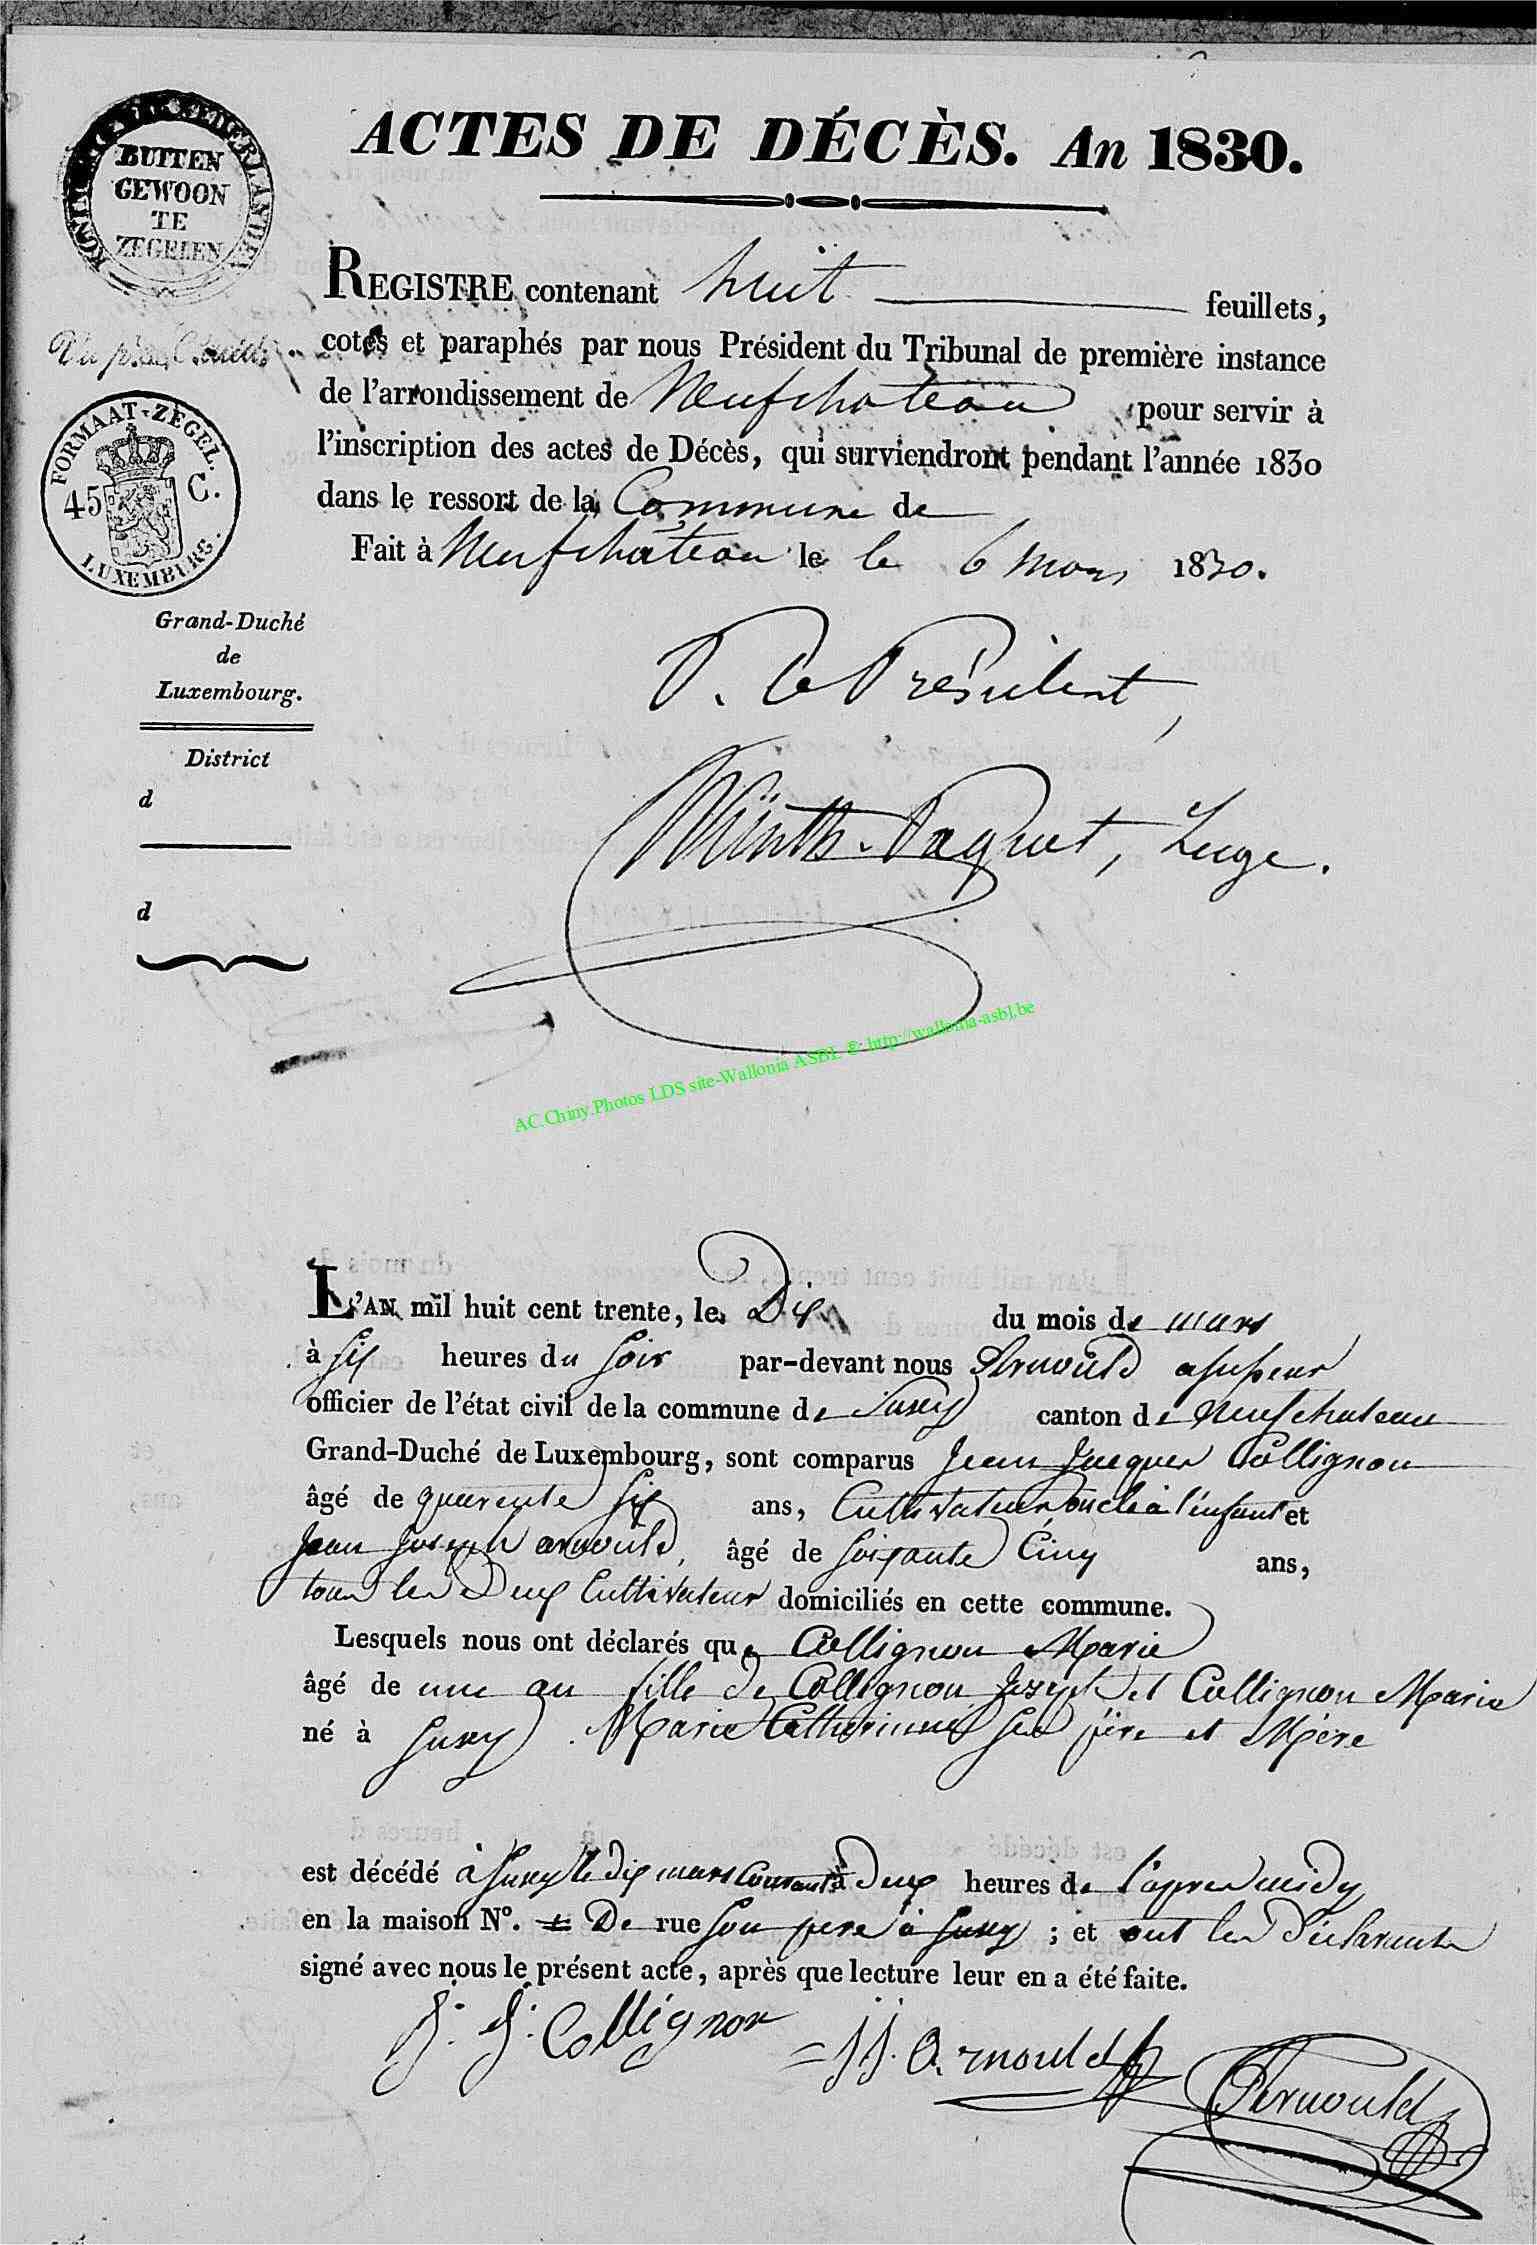 ACTES DE DÉCÈS. An 1830.
KONINGRYK DER NEDERLANDEN
BUITEN
GEWOON
TE
ZEGELEN
REGISTRE contenant huit feuillets,
cotés et paraphés par nous Président du Tribunal de première instance
de l'arrondissement de Neufchateau pour servir à
l'inscription des actes de Décès, qui surviendront pendant l'année 1830
dans le ressort de la Commune de
Fait à Neufchâteau le le 6 mars 1830.
FORMAAT-ZEGEL.
45 C.
LUXEMBURG.
Grand-Duché
de
Luxembourg.
District
d
d
P. Le Président,
Münth-Paquet, Juge.
AC.Chiny.Photos LDS site-Wallonia ASBL © http://wallonia-asbl.be
L'AN mil huit cent trente, le Dix du mois de mars
à six heures du soir par-devant nous Arnould assesseur
officier de l'état civil de la commune de Suxy canton de Neufchateau
Grand-Duché de Luxembourg, sont comparus Jean Jacques Collignon
âgé de quarente six ans, Cultivateur oncle à l'enfant et
Jean Joseph arnould, âgé de soixante Cinq ans,
tous les Deux Cultivateur domiciliés en cette commune.
Lesquels nous ont déclarés que Collignon Marie
âgé de une an fille de Collignon Joseph et Collignon Marie
né à Suxy Marie Catherinne ses père et Mère
est décédé à Suxy le dix mars Courant à Deux heures de l'apres midy
en la maison N°. De rue son pere à Suxy ; et ont les Déclarants
signé avec nous le présent acte, après que lecture leur en a été faite.
J. J. Collignon
J J. Arnould
Arnould